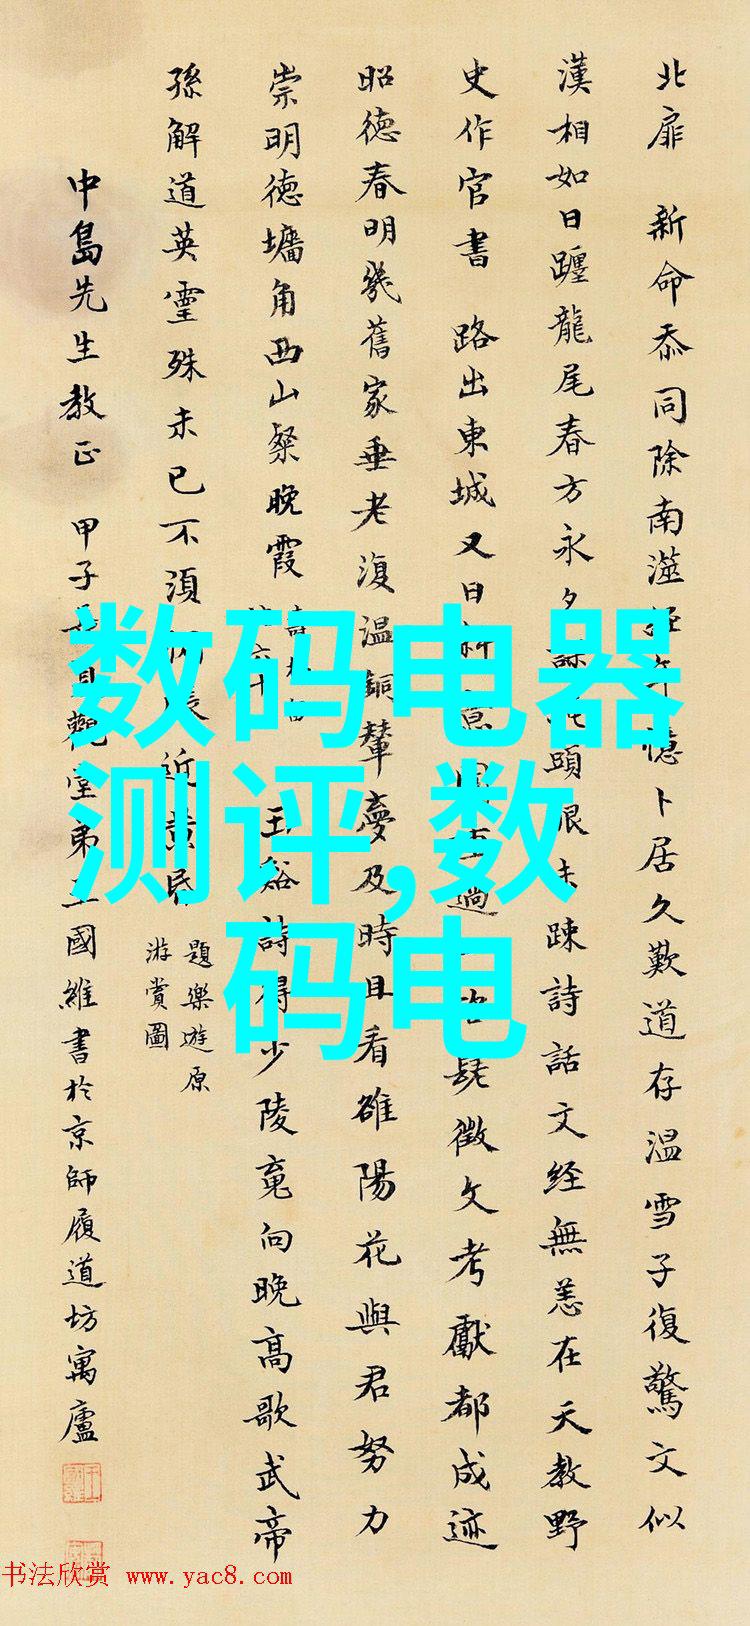 北扉　新命忝同除南
卜居久歎道存温雪子復驚文似
漢相如日躔龍尾春方永夕
頭恨未疎詩話文經無恙在天教野
史作官書　路出東城又日斜
髦徵文考獻都成迹
昭德春明幾舊家垂老復温銅輦夢及時且看雒陽花與君努力
崇明德墉角西山粲晚霞
玉谿詩得少陵竟向晚高歌武帝
孫解道英靈殊未已不須
近黄昏
題樂遊原
游賞圖
中島先生教正　甲子
觀堂弟王國維書於京師履道坊寓廬
数码电器
测评,数
码电
书法欣赏 www.yac8.com